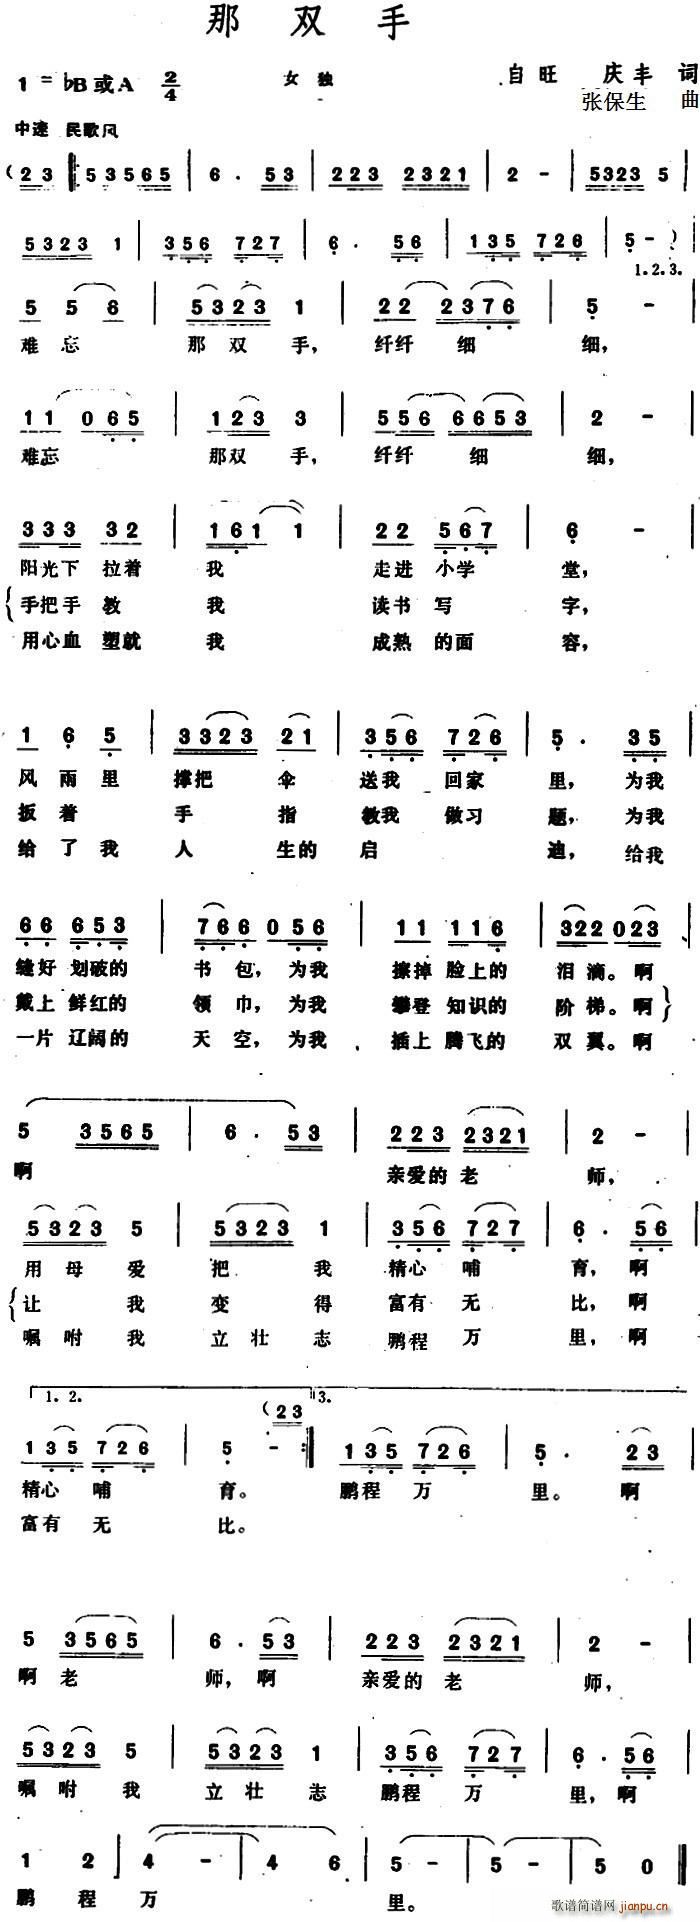 那 双 手
1=♭B或A 2/4 女独 白旺 庆丰 词
张保生 曲
中速 民歌风
(23 53565 | 6. 53 | 223 2321 | 2 - | 5323 5 |
5323 1 | 356 727 | 6. 56 | 135 726 | 5 - )
1.2.3.
5 5 6 | 5323 1 | 22 2376 | 5 -
难忘 那双 手, 纤纤 细 细,
11 065 | 123 3 | 556 6653 | 2 - |
难忘 那双 手, 纤纤 细 细,
333 32 | 161 1 | 22 567 | 6 - |
阳光下 拉着 我 走进 小学 堂,
手把手 教 我 读书 写 字,
用心血 塑就 我 成熟 的面 容,
1 6 5 | 3323 21 | 356 726 | 5. 35 |
风 雨里 撑把 伞 送我 回家 里, 为我
扳着 手 指 教我 做习 题, 为我
给了我 人 生的 启 迪, 给我
66 653 | 766 056 | 11 116 | 322 023 |
缝好 划破的 书包, 为我 擦掉 脸上的 泪滴。啊
戴上 鲜红的 领巾, 为我 攀登 知识的 阶梯。啊
一片 辽阔的 天空, 为我 插上 腾飞的 双翼。啊
5 3565 | 6. 53 | 223 2321 | 2 - |
啊 亲爱的 老 师,
5323 5 | 5323 1 | 356 727 | 6. 56 |
用母 爱 把 我 精心 哺 育, 啊
让 我 变 得 富有 无 比, 啊
嘱咐 我 立壮 志 鹏程 万 里, 啊
1.2. (23 3.
135 726 | 5 - :| 135 726 | 5. 23 |
精心 哺 育。 鹏程 万 里。 啊
富有 无 比。
5 3565 | 6. 53 | 223 2321 | 2 - |
啊 老 师, 啊 亲爱的 老 师,
5323 5 | 5323 1 | 356 727 | 6. 56 |
嘱咐 我 立壮 志 鹏程 万 里, 啊
1 2 | 4 - | 4 6 | 5 - | 5 - | 5 0 ‖
鹏 程 万 里。
歌谱简谱网 jianpu.cn